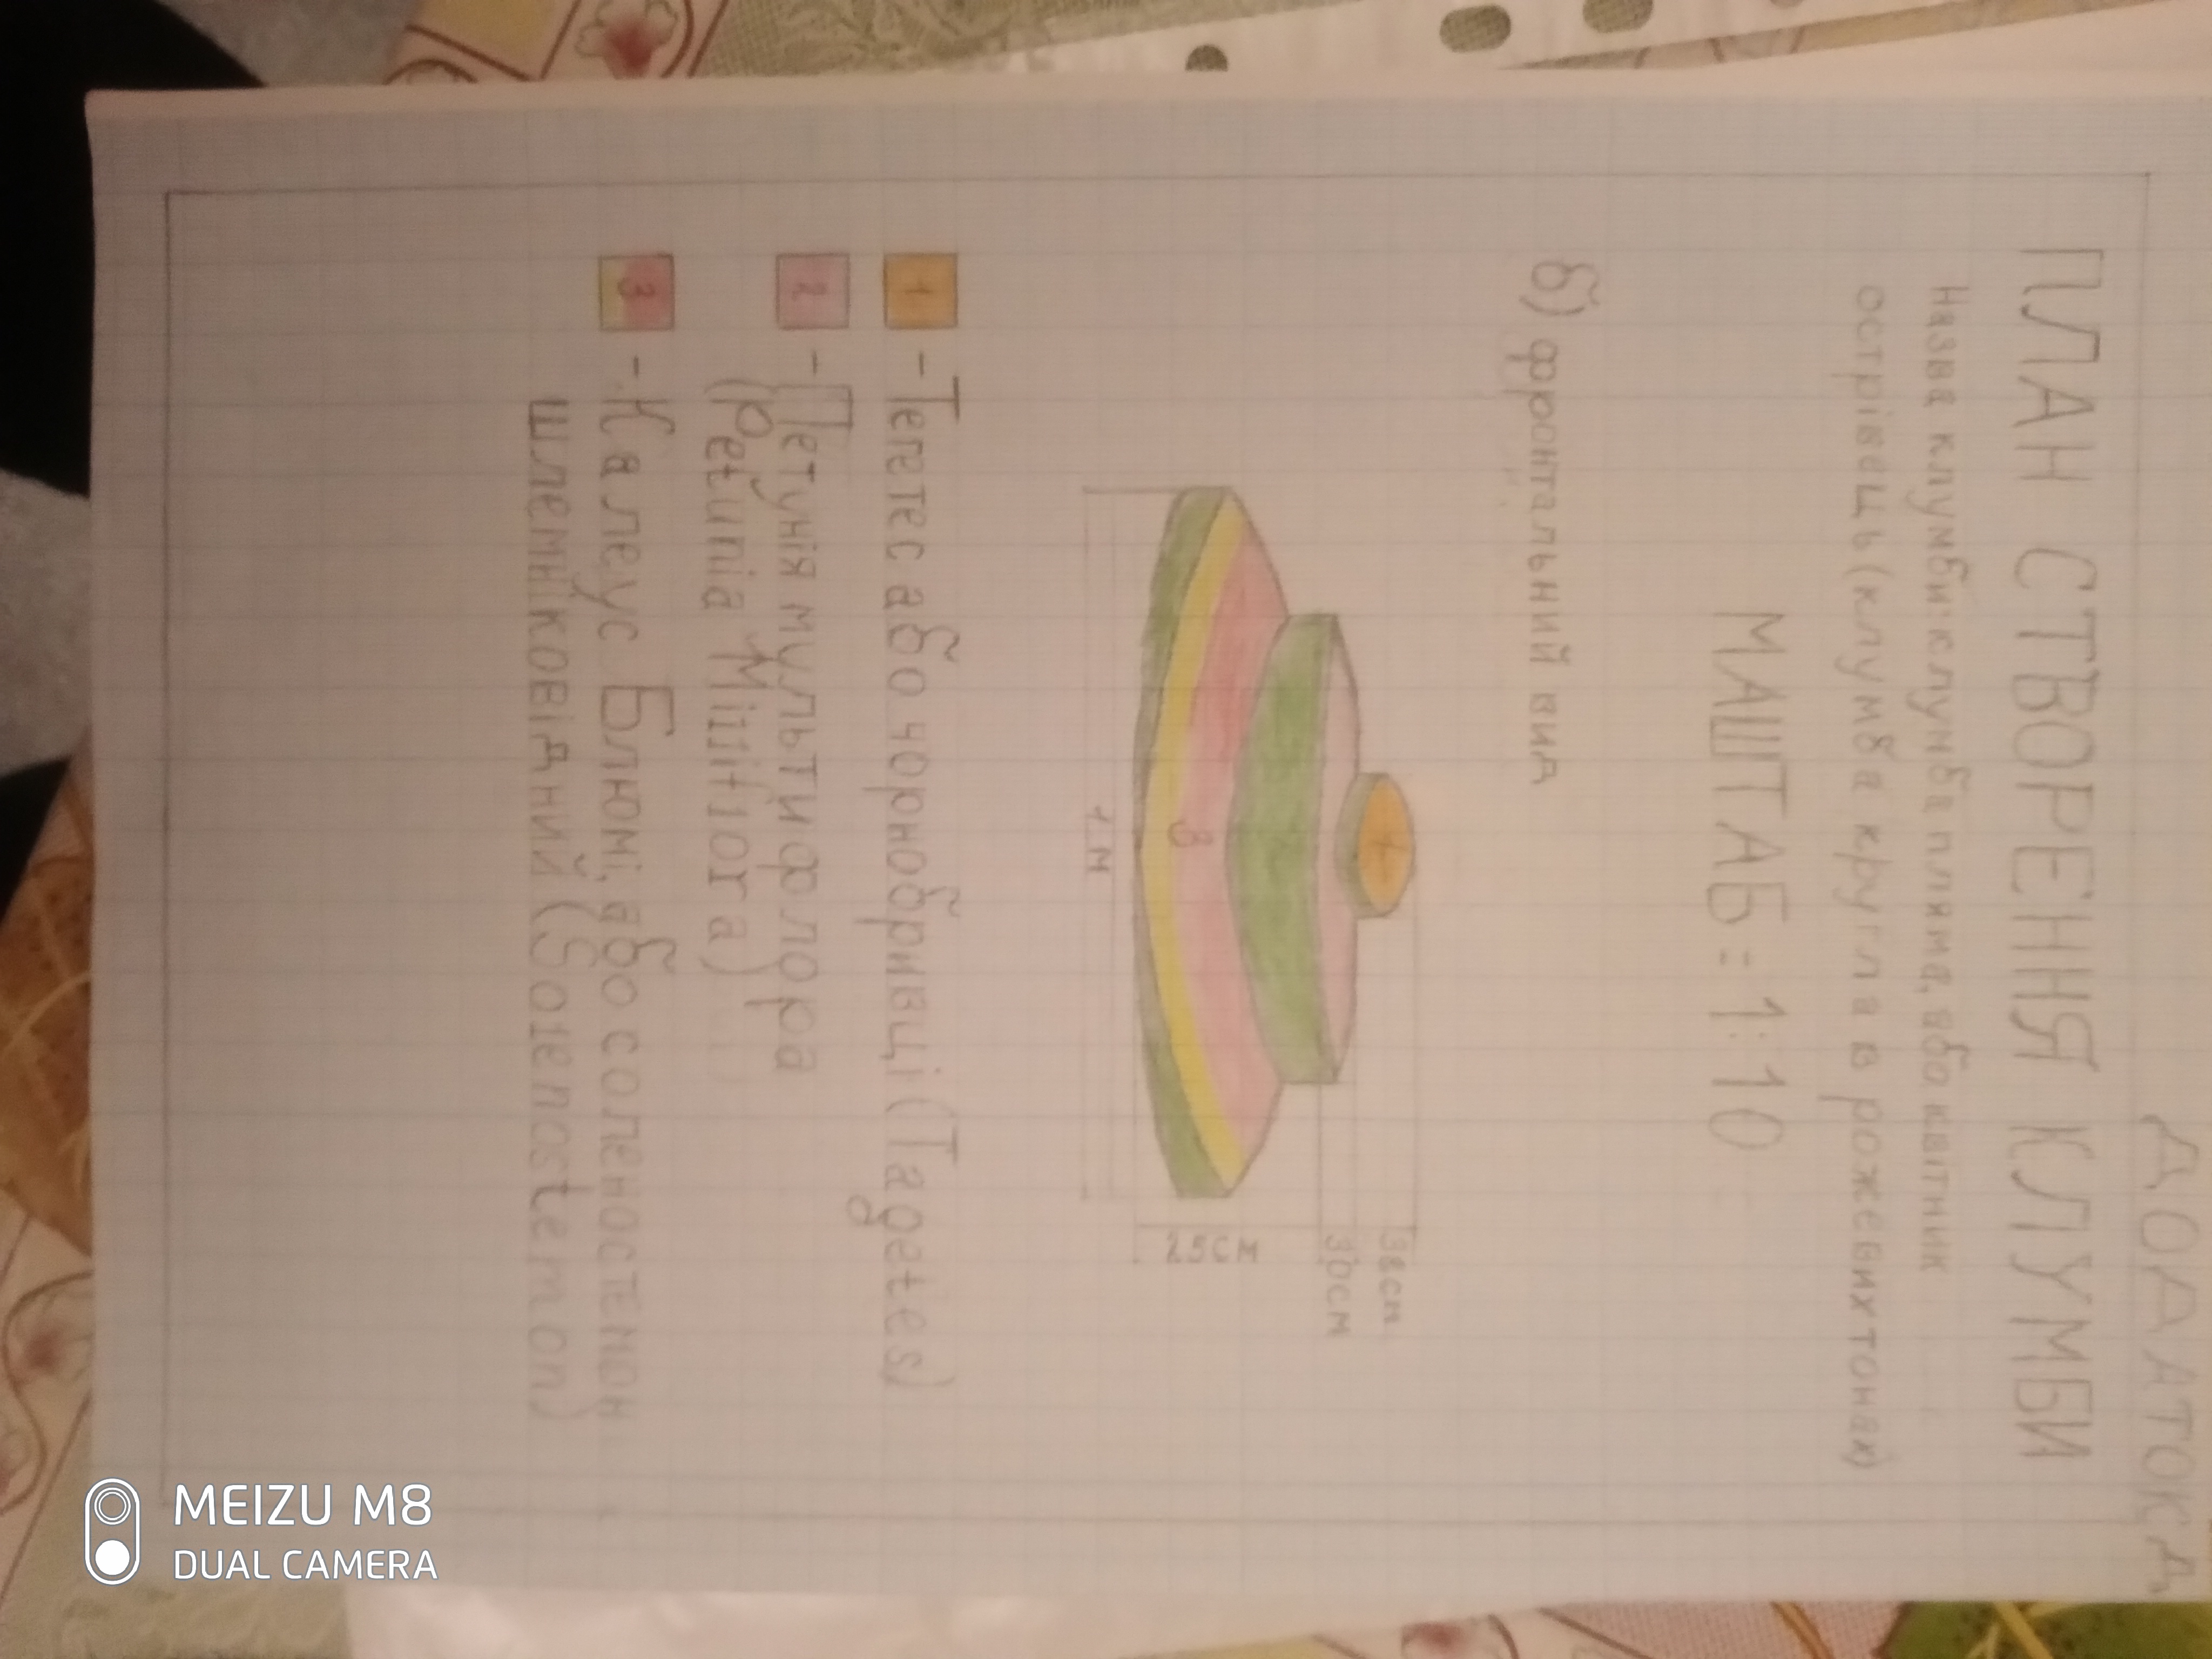 ДОДАТОК Д
ПЛАН СТВОРЕННЯ КЛУМБИ
Назва клумби: клумба пляма, або квітник
острівець (клумба кругла в рожевих тонах)
МАШТАБ = 1:10
б) фронтальний вид
1
2
3
38см
30см
25см
1 м
1 - Тегетес або чорнобривці (Tagetes)
2 - Петунія мультифлора
(Petunia Miltiflora)
3 - Калеус Блюмі, або соленостемон
шлемніковідний (Solenostemon)
MEIZU M8
DUAL CAMERA